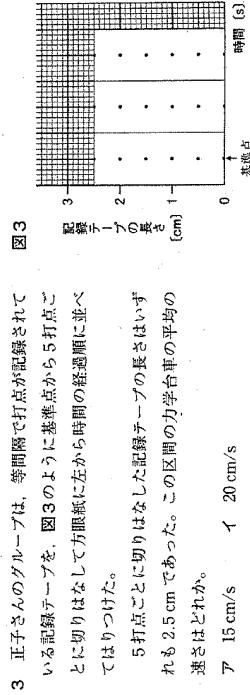 3 正子さんのグループは，等間隔で打点が記録されて
いる記録テープを，図3のように基準点から5打点ご
とに切りはなして方眼紙に左から時間の経過順に並べ
てはりつけた。
5打点ごとに切りはなした記録テープの長さはいず
れも2.5cmであった。この区間の力学台車の平均の
速さはどれか。
ア 15cm/s イ 20cm/s
図3
記録テープの長さ
[cm]
3
2
1
0
基準点
時間 [s]